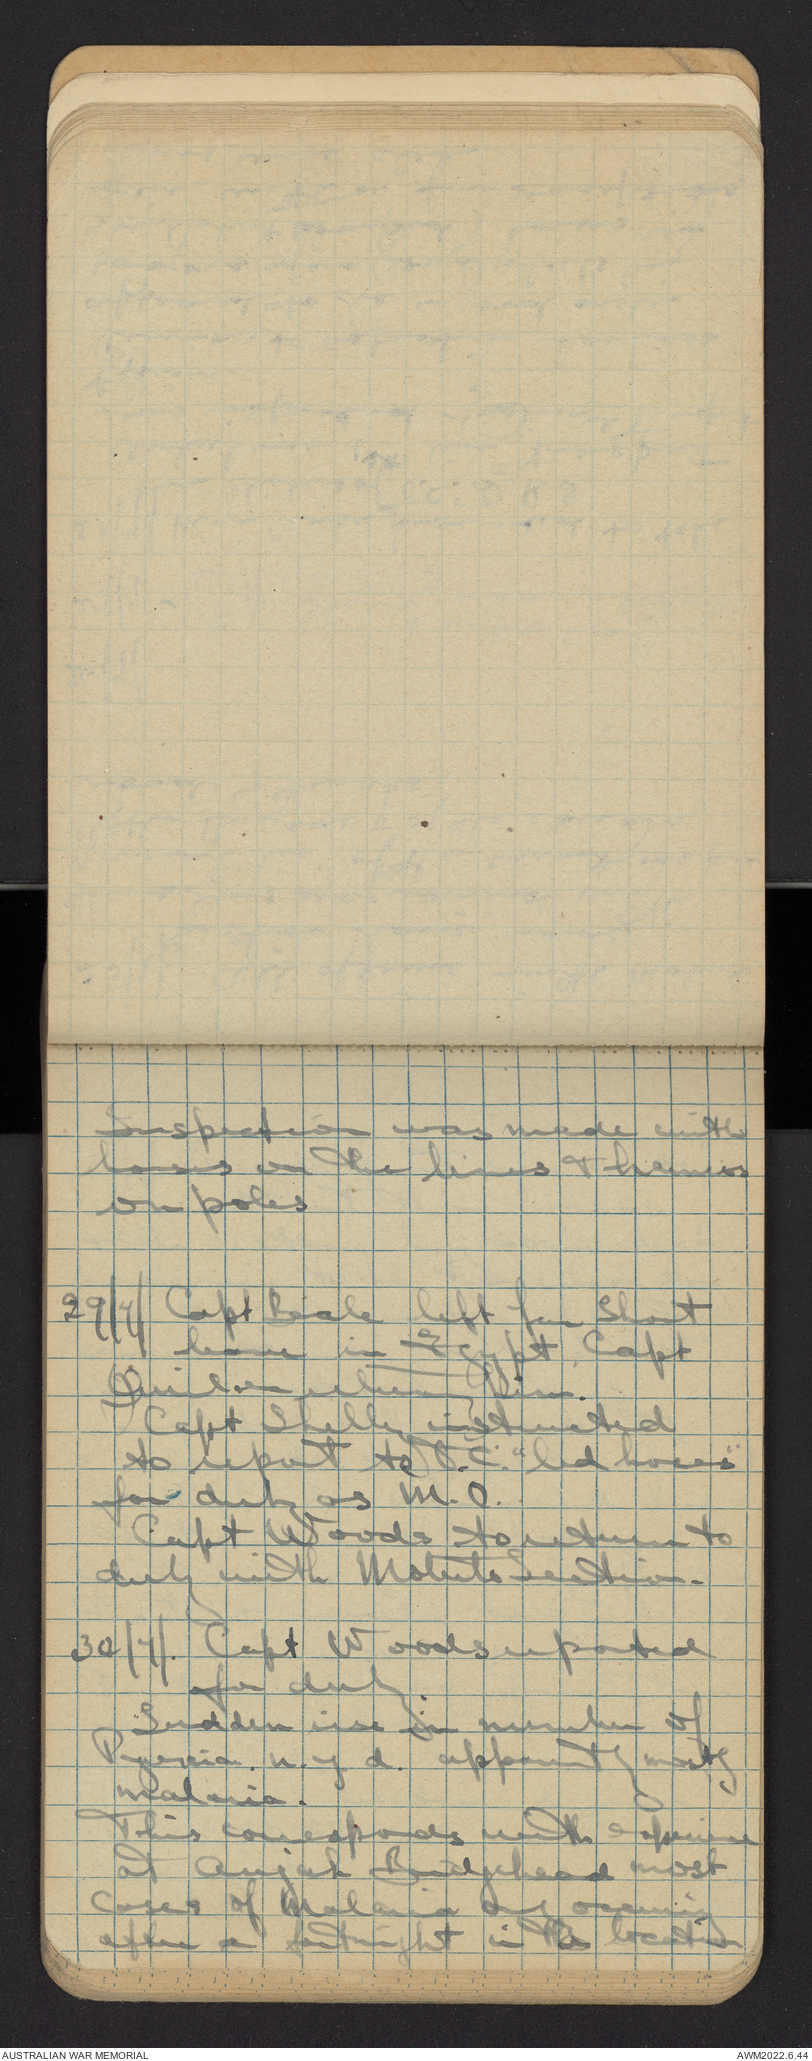 Inspection was made with
horses on the lines & harness
on poles
29/7/ Capt Beale left for Short
leave in Egypt Capt
relieving him.
Capt Shelley instructed
to report to O.C. "led horses"
for duty as M.O.
Capt Woods to return to
duty with Mobile Section.
30/7/. Capt Woods reported
for duty
Sudden rise in number of
Pyrexia n.y.d. apparently mostly
malaria.
This corresponds with experience
at Aujah Bridgehead most
cases of Malaria only occurring
after a fortnight in the location
AUSTRALIAN WAR MEMORIAL
AWM2022.6.44